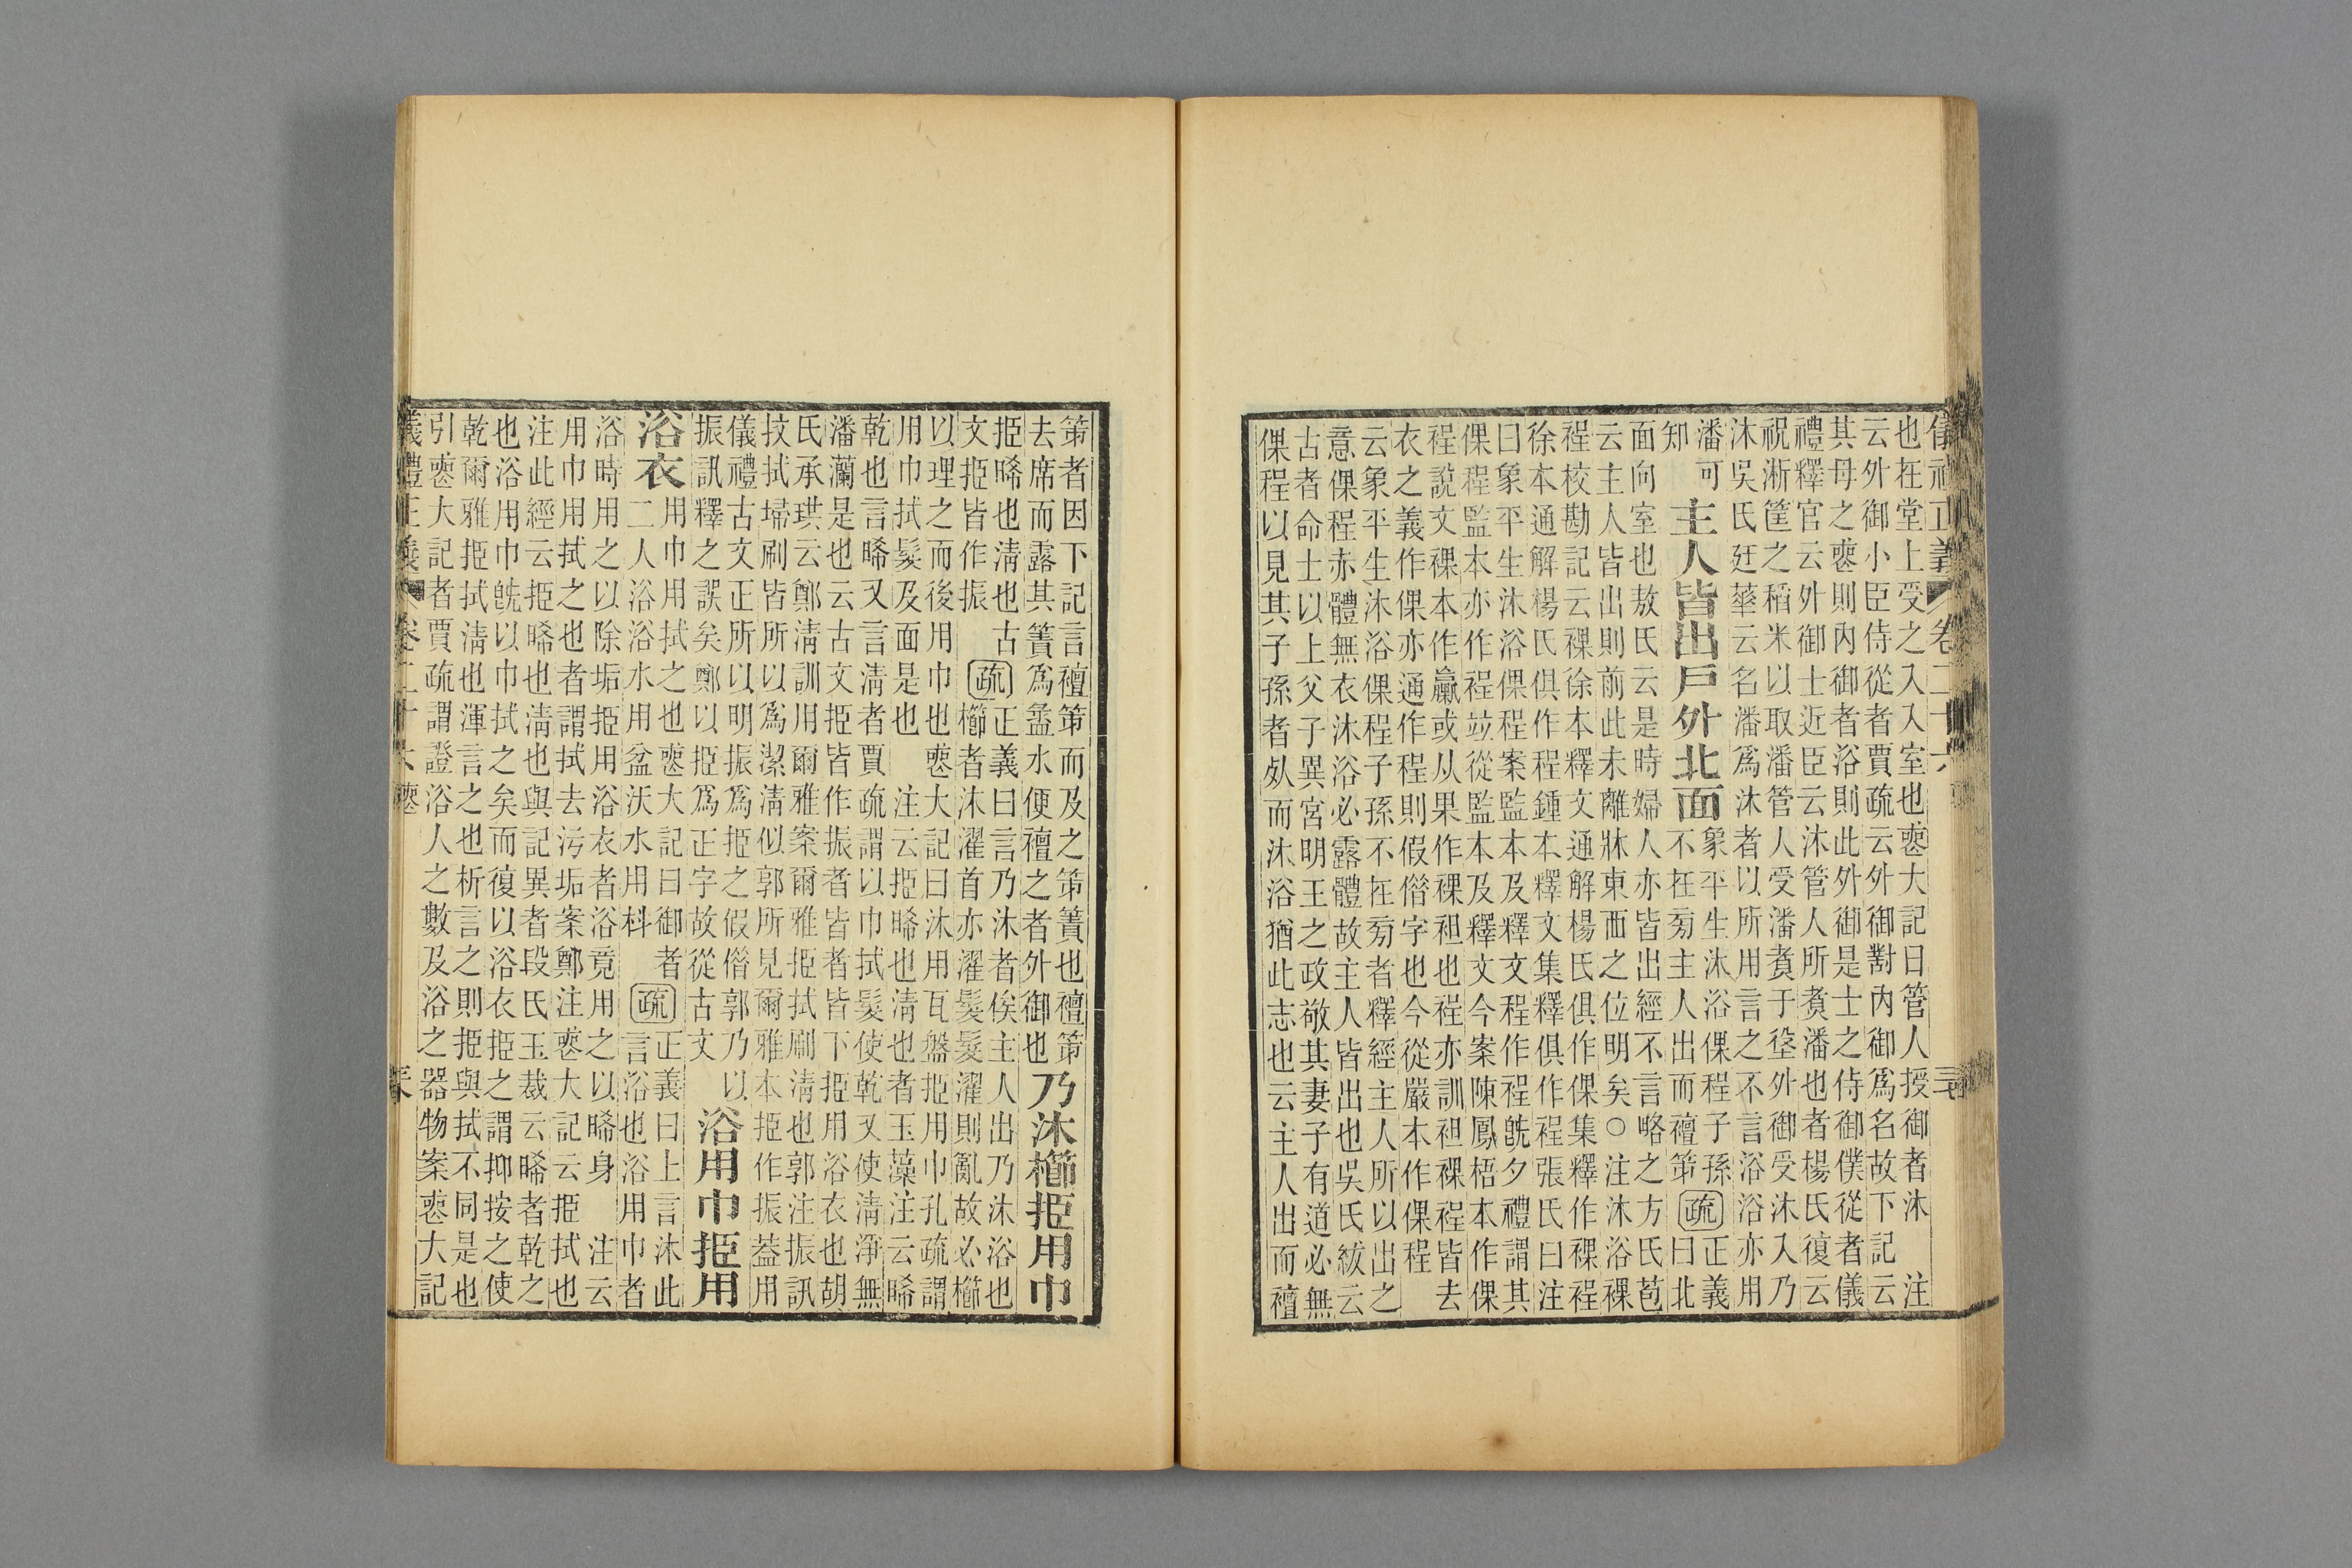 儀禮正義 卷二十六
也在堂上受之入入室也喪大記曰管人授御者沐 注
云外御小臣侍從者賈疏云外御對內御爲名故下記云
其母之喪則內御者浴則此外御是士之侍御僕從者儀
禮釋官云外御士近臣云沐管人所煑潘也者楊氏復云
祝淅筐之稻米以取潘管人受潘煑于垼外御受沐入乃
沐吳氏廷華云名潘爲沐者以所用言之不言浴浴亦用
潘可知
主人皆出戶外北面
象平生沐浴倮程子孫
不在㫄主人出而襢笫
疏
正義曰北
面向室也敖氏云是時婦人亦皆出經不言略之方氏苞
云主人皆出則前此未離牀東西之位明矣○注沐浴裸
裎校勘記云裸徐本釋文通解楊氏俱作倮集釋作裸裎
徐本通解楊氏俱作程鍾本釋文集釋俱作裎張氏曰注
曰象平生沐浴倮程案監本及釋文程作裎旣夕禮謂其
倮程監本亦作裎竝從監本及釋文今案陳鳳梧本作倮
裎說文裸本作臝或从果作裸袒也裎亦訓袒裸裎皆去
衣之義作倮亦通作程則假借字也今從嚴本作倮程
云象平生沐浴倮程子孫不在㫄者釋經主人所以出之
意倮程赤體無衣沐浴必露體故主人皆出也吳氏紱云
古者命士以上父子異宮明王之政敬其妻子有道必無
倮程以見其子孫者夃而沐浴猶此志也云主人出而襢
笫者因下記言襢笫而及之笫簀也襢笫
去席而露其簀爲盝水便襢之者外御也
乃沐櫛挋用巾
挋晞也清也古
文挋皆作振
疏
正義曰言乃沐者俟主人出乃沐浴也
櫛者沐濯首亦濯髮髮濯則亂故必櫛
以理之而後用巾也喪大記曰沐用瓦盤挋用巾孔疏謂
用巾拭髮及面是也 注云挋晞也清也者玉藻注云晞
乾也言晞又言清者賈疏謂以巾拭髮使乾又使清淨無
潘灡是也云古文挋皆作振者皆下挋用浴衣也胡
氏承珙云鄭清訓用爾雅案爾雅挋拭刷清也郭注振訊
技拭埽刷皆所以爲潔清似郭所見爾雅本挋作振葢用
儀禮古文正所以明振爲挋之假借郭乃以
振訊釋之誤矣鄭以挋爲正字故從古文
浴用巾挋用
浴衣
用巾用拭之也喪大記曰御者
二人浴浴水用盆沃水用枓
疏
正義曰上言沐此
言浴也浴用巾者
浴時用之以除垢挋用浴衣者浴竟用之以晞身 注云
用巾用拭之也者謂拭去污垢案鄭注喪大記云挋拭也
注此經云挋晞也清也與記異者段氏玉裁云晞者乾之
也浴用巾旣以巾拭之矣而復以浴衣挋之謂抑按之使
乾爾雅挋拭清也渾言之也析言之則挋與拭不同是也
引喪大記者賈疏謂證浴人之數及浴之器物案喪大記
儀禮正義 卷二十六 喪